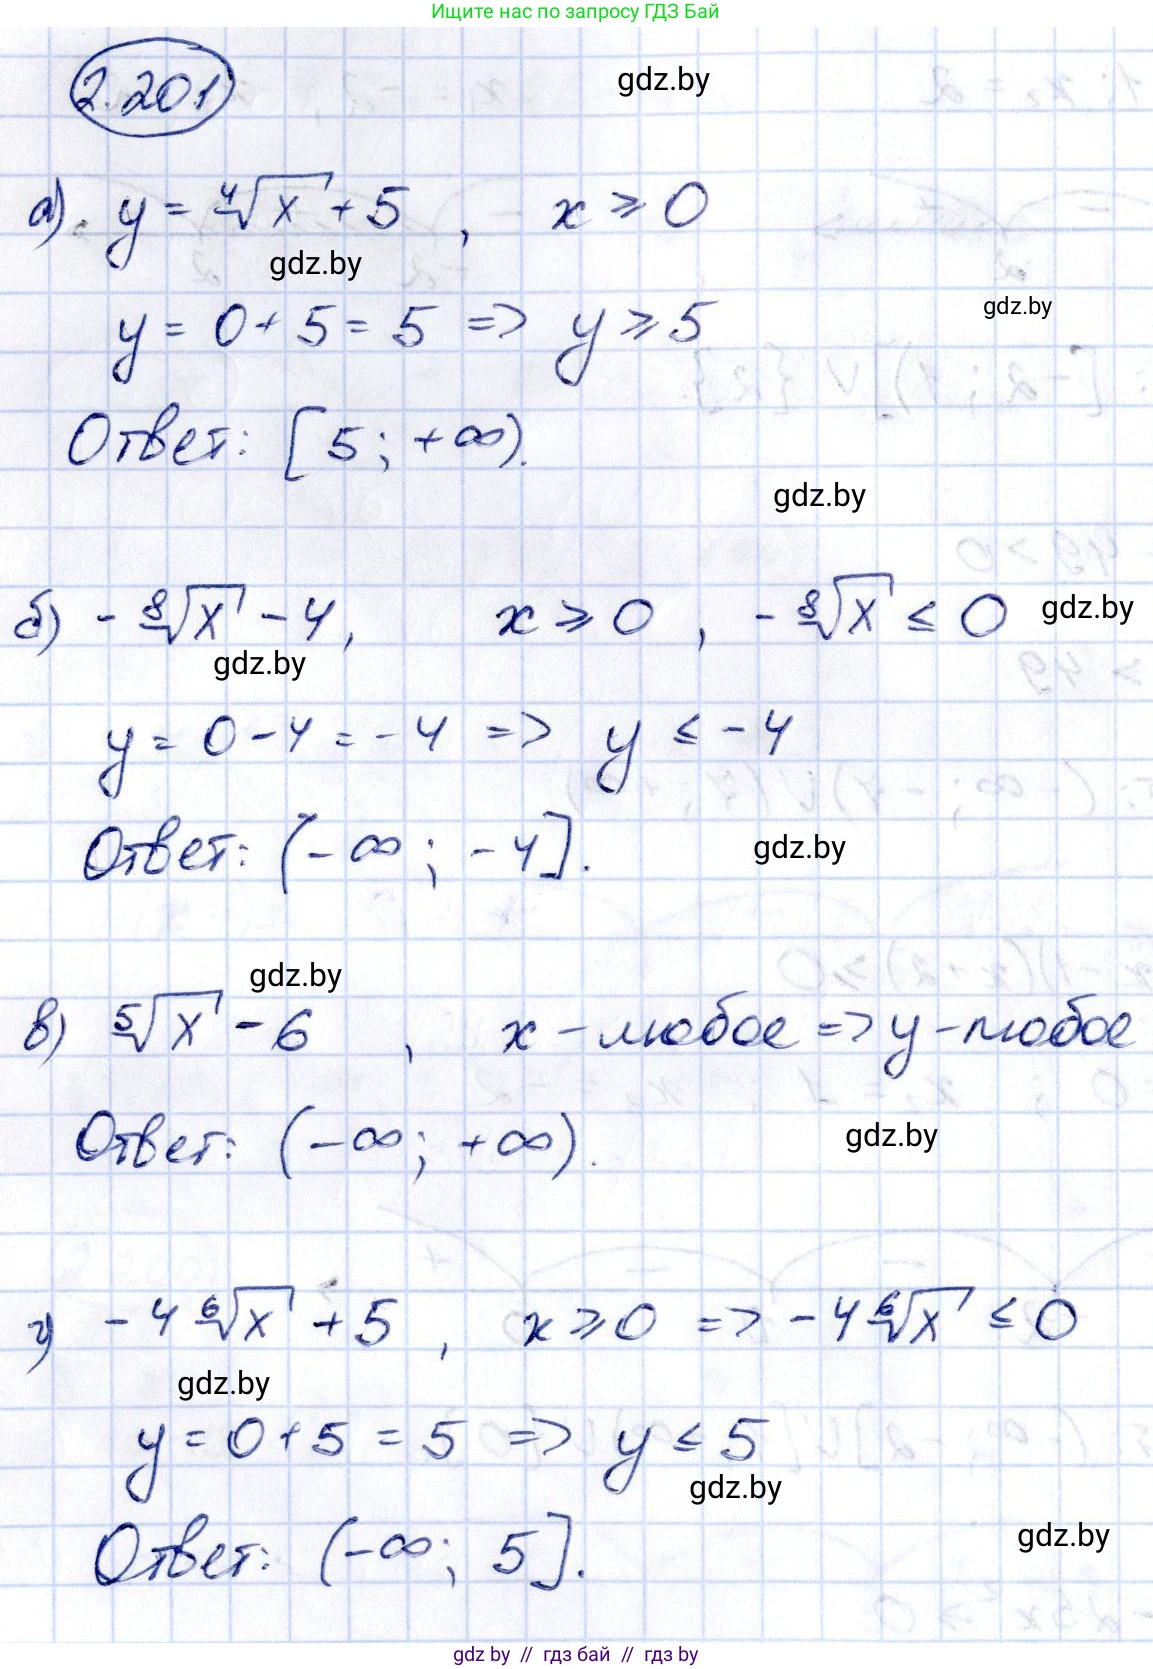 Ищите нас по запросу ГДЗ Бай
2.201
gdz.by
а) y = ⁴√x + 5, x ⩾ 0
gdz.by
gdz.by
y = 0 + 5 = 5 => y ⩾ 5
Ответ: [5; +∞).
gdz.by
б) - ⁸√x - 4, x ⩾ 0, - ⁸√x ≤ 0
gdz.by
gdz.by
y = 0 - 4 = - 4 => y ≤ - 4
Ответ: (-∞; -4].
gdz.by
gdz.by
в) ⁵√x - 6, x - любое => y - любое
Ответ: (-∞; +∞).
gdz.by
г) - 4 ⁶√x + 5, x ⩾ 0 => - 4 ⁶√x ≤ 0
gdz.by
y = 0 + 5 = 5 => y ≤ 5
gdz.by
Ответ: (-∞; 5].
gdz.by
gdz.by // гдз бай // gdz.by